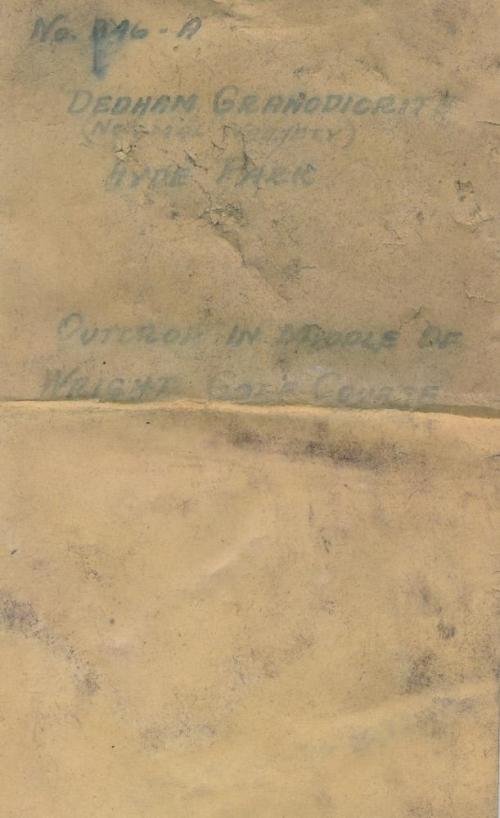 No. 346 - A
DEDHAM GRANODIORITE
(NORMAL
HYDE PARK
OUTCROP IN MIDDLE OF
WRIGHT GOLF COURSE